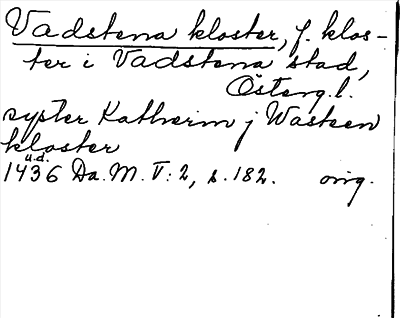 Vadstena kloster, f. klos-
ter i Vadstena stad,
Österg.l.
syster Katherin j Wasteen
kloster
1436 u.d. Da. M. V: 2, s. 182. orig.